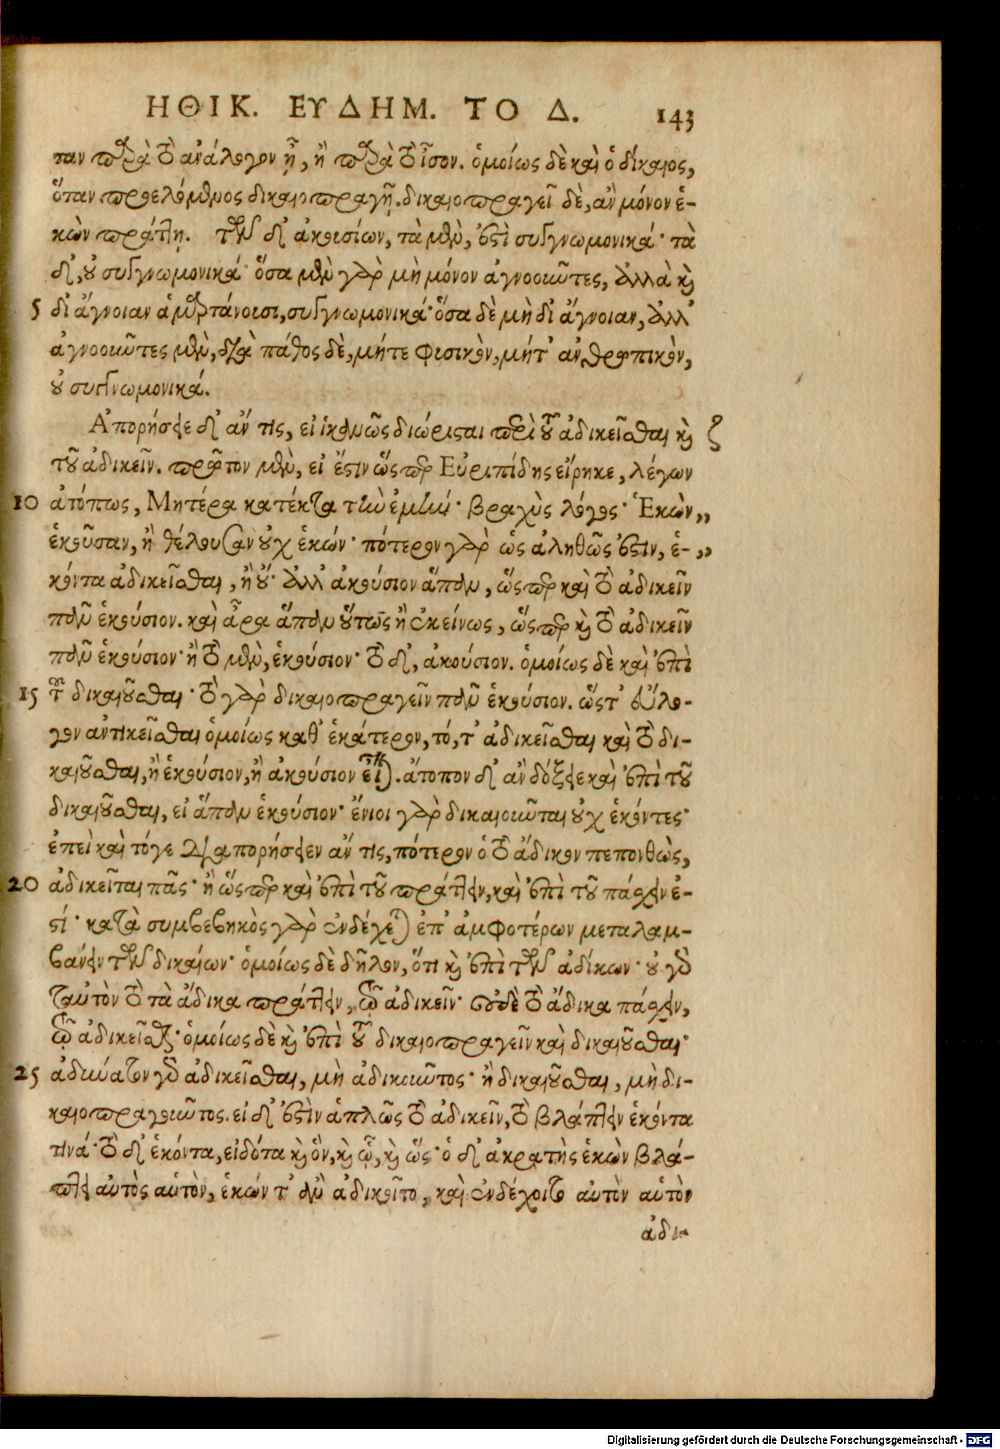 ΗΘΙΚ. ΕΥΔΗΜ. ΤΟ Δ. 143
ταν παρὰ τὸ ἀνάλογον ᾖ, ἢ παρὰ τὸ ἴσον. ὁμοίως δὲ καὶ ὁ δίκαιος,
ὅταν προελόμενος δικαιοπραγῇ. δικαιοπραγεῖ δὲ, ἂν μόνον ἑ-
κὼν πράττῃ. τῶν δ' ἀκουσίων, τὰ μὲν, ἐστὶ συγγνωμονικά· τὰ
δ', οὐ συγγνωμονικά· ὅσα μὲν γὰρ μὴ μόνον ἀγνοοῦντες, ἀλλὰ καὶ
5 δι' ἄγνοιαν ἁμαρτάνουσι, συγγνωμονικά· ὅσα δὲ μὴ δι' ἄγνοιαν, ἀλλ'
ἀγνοοῦντες μὲν, διὰ πάθος δὲ, μήτε φυσικὸν, μήτ' ἀνθρωπικὸν,
οὐ συγγνωμονικά.
Ἀπορήσειε δ' ἄν τις, εἰ ἱκανῶς διώρισται περὶ τοῦ ἀδικεῖσθαι καὶ ζ
τοῦ ἀδικεῖν. πρῶτον μὲν, εἰ ἔστιν ὥσπερ Εὐριπίδης εἴρηκε, λέγων
10 ἀτόπως, Μητέρα κατέκτα τὴν ἐμήν· βραχὺς λόγος· Ἑκὼν „
ἑκοῦσαν, ἢ θέλουσαν οὐχ ἑκών· πότερον γὰρ ὡς ἀληθῶς ἐστιν, ἑ- „
κόντα ἀδικεῖσθαι, ἢ οὔ· ἀλλ' ἀκούσιον ἅπαν, ὥσπερ καὶ τὸ ἀδικεῖν
πᾶν ἑκούσιον. καὶ ἆρα ἅπαν οὕτως ἢ ἐκείνως, ὥσπερ καὶ τὸ ἀδικεῖν
πᾶν ἑκούσιον· ἢ τὸ μὲν, ἑκούσιον· τὸ δ', ἀκούσιον. ὁμοίως δὲ καὶ ἐπὶ
15 τοῦ δικαιοῦσθαι· τὸ γὰρ δικαιοπραγεῖν πᾶν ἑκούσιον. ὥστ' εὔλο-
γον ἀντικεῖσθαι ὁμοίως καθ' ἑκάτερον, τό, τ' ἀδικεῖσθαι καὶ τὸ δι-
καιοῦσθαι, ἢ ἑκούσιον, ἢ ἀκούσιον εἶναι. ἄτοπον δ' ἂν δόξειε καὶ ἐπὶ τοῦ
δικαιοῦσθαι, εἰ ἅπαν ἑκούσιον· ἔνιοι γὰρ δικαιοῦνται οὐχ ἑκόντες·
ἐπεὶ καὶ τόγε διαπορήσειεν ἄν τις, πότερον ὁ τὸ ἄδικον πεπονθὼς,
20 ἀδικεῖται πᾶς· ἢ ὥσπερ καὶ ἐπὶ τοῦ πράττειν, καὶ ἐπὶ τοῦ πάσχειν ἐ-
στί· κατὰ συμβεβηκὸς γὰρ ἐνδέχεται ἐπ' ἀμφοτέρων μεταλαμ-
βάνειν τῶν δικαίων· ὁμοίως δὲ δῆλον, ὅτι καὶ ἐπὶ τῶν ἀδίκων· οὐ γὰρ
ταὐτὸν τὸ τὰ ἄδικα πράττειν, τῷ ἀδικεῖν· οὐδὲ τὸ ἄδικα πάσχειν,
τῷ ἀδικεῖσθαι· ὁμοίως δὲ καὶ ἐπὶ τοῦ δικαιοπραγεῖν καὶ δικαιοῦσθαι·
25 ἀδύνατον γὰρ ἀδικεῖσθαι, μὴ ἀδικοῦντος· ἢ δικαιοῦσθαι, μὴ δι-
καιοπραγοῦντος. εἰ δ' ἐστὶν ἁπλῶς τὸ ἀδικεῖν, τὸ βλάπτειν ἑκόντα
τινά· τὸ δ' ἑκόντα, εἰδότα καὶ ὃν, καὶ ᾧ, καὶ ὥς· ὁ δ' ἀκρατὴς ἑκὼν βλά-
πτει αὐτὸς αὑτὸν, ἑκών τ' ἂν ἀδικοῖτο, καὶ ἐνδέχοιτο αὐτὸν αὑτὸν
ἀδι-
Digitalisierung gefördert durch die Deutsche Forschungsgemeinschaft - DFG